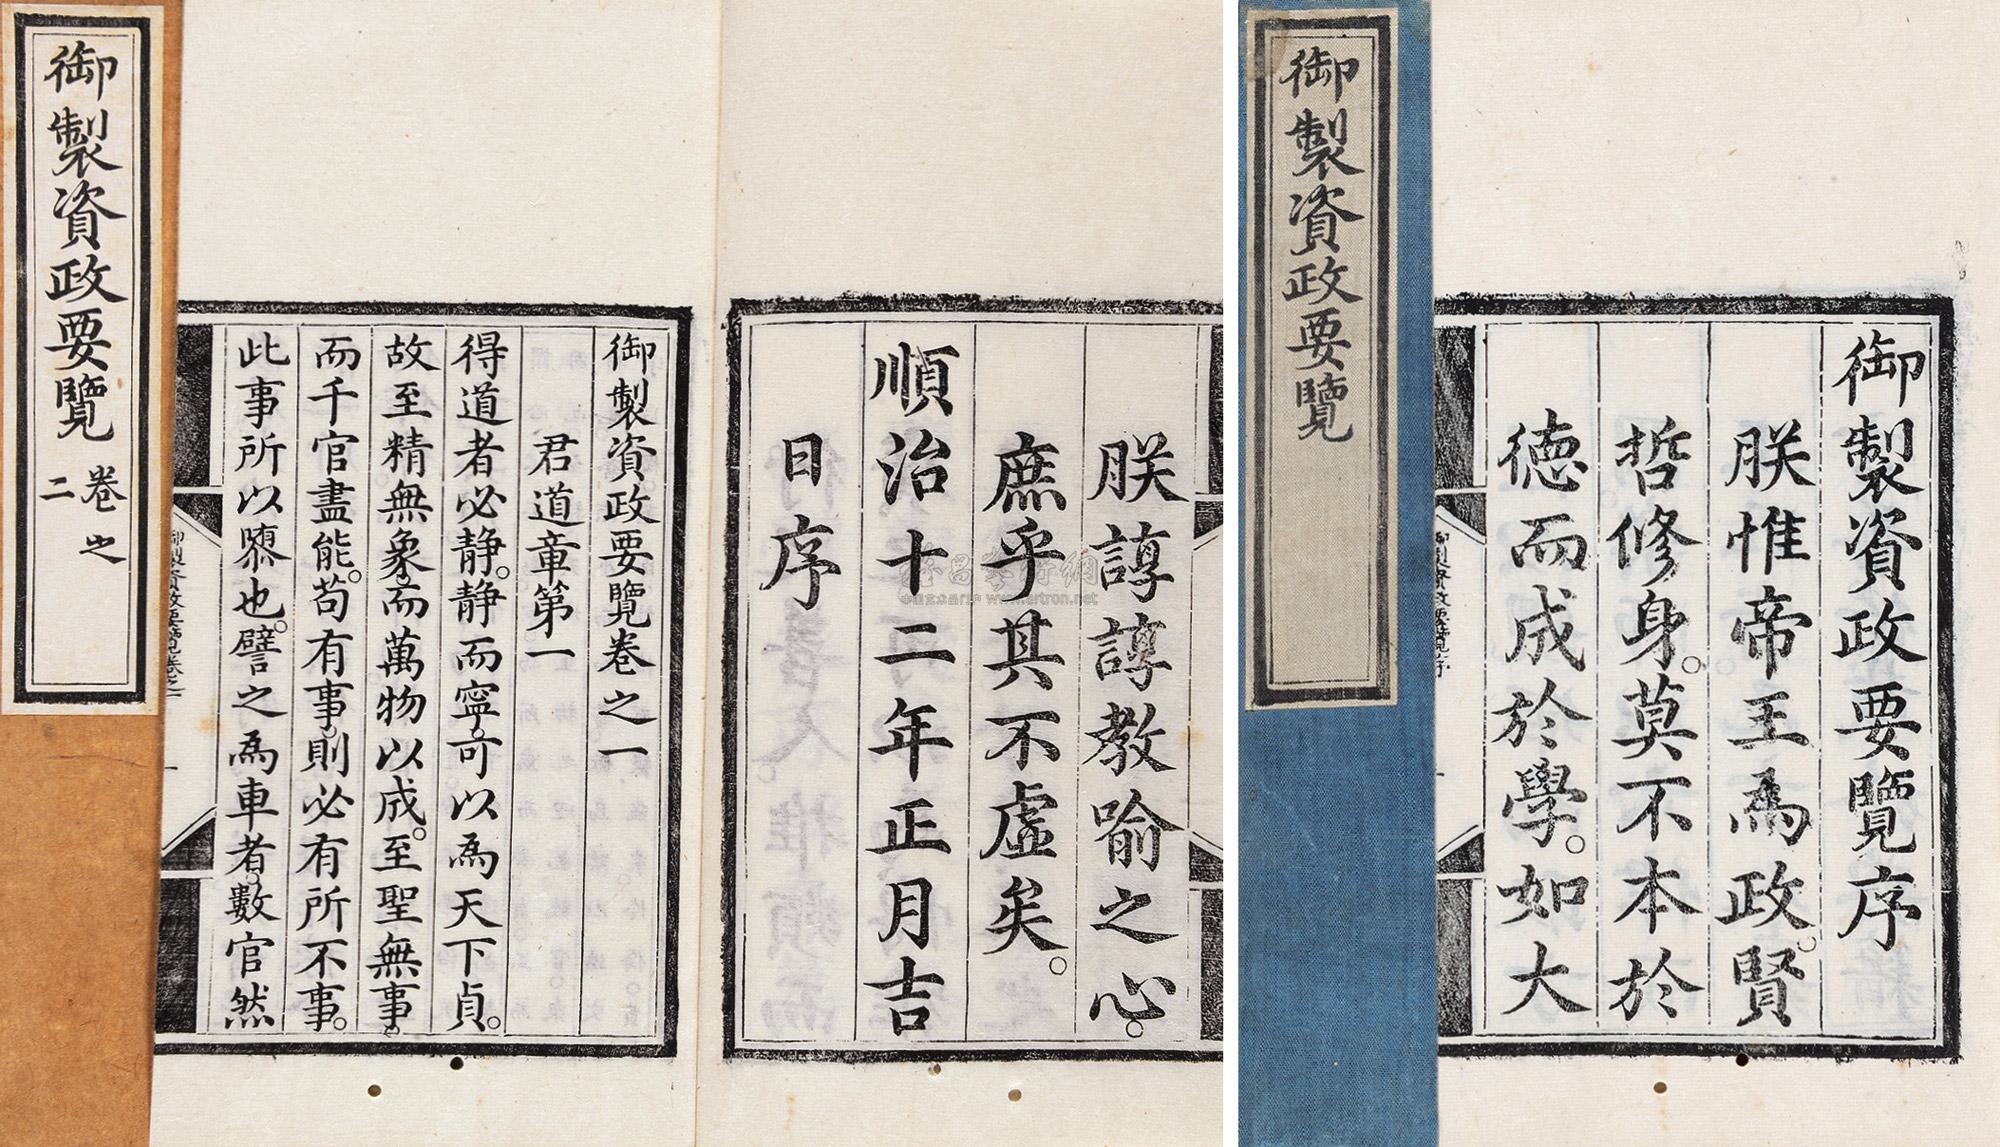 御製資政要覽
御製資政要覽序
朕惟帝王為政。賢
哲修身。莫不本於
德而成於學。如大
朕諄諄教喻之心。
庶乎其不虛矣。
順治十二年正月吉
日序
御製資政要覽卷之一
君道章第一
得道者必静。静而寧。可以為天下貞。
故至精無象。而萬物以成。至聖無事。
而千官盡能。苟有事。則必有所不事。
此事所以隳也。譬之為車者。數官然
御製資政要覽
卷之
二